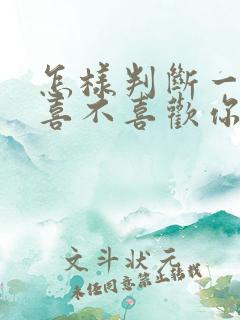 怎樣判斷一
喜不喜歡你
文斗狀元
未任同意禁止轉載